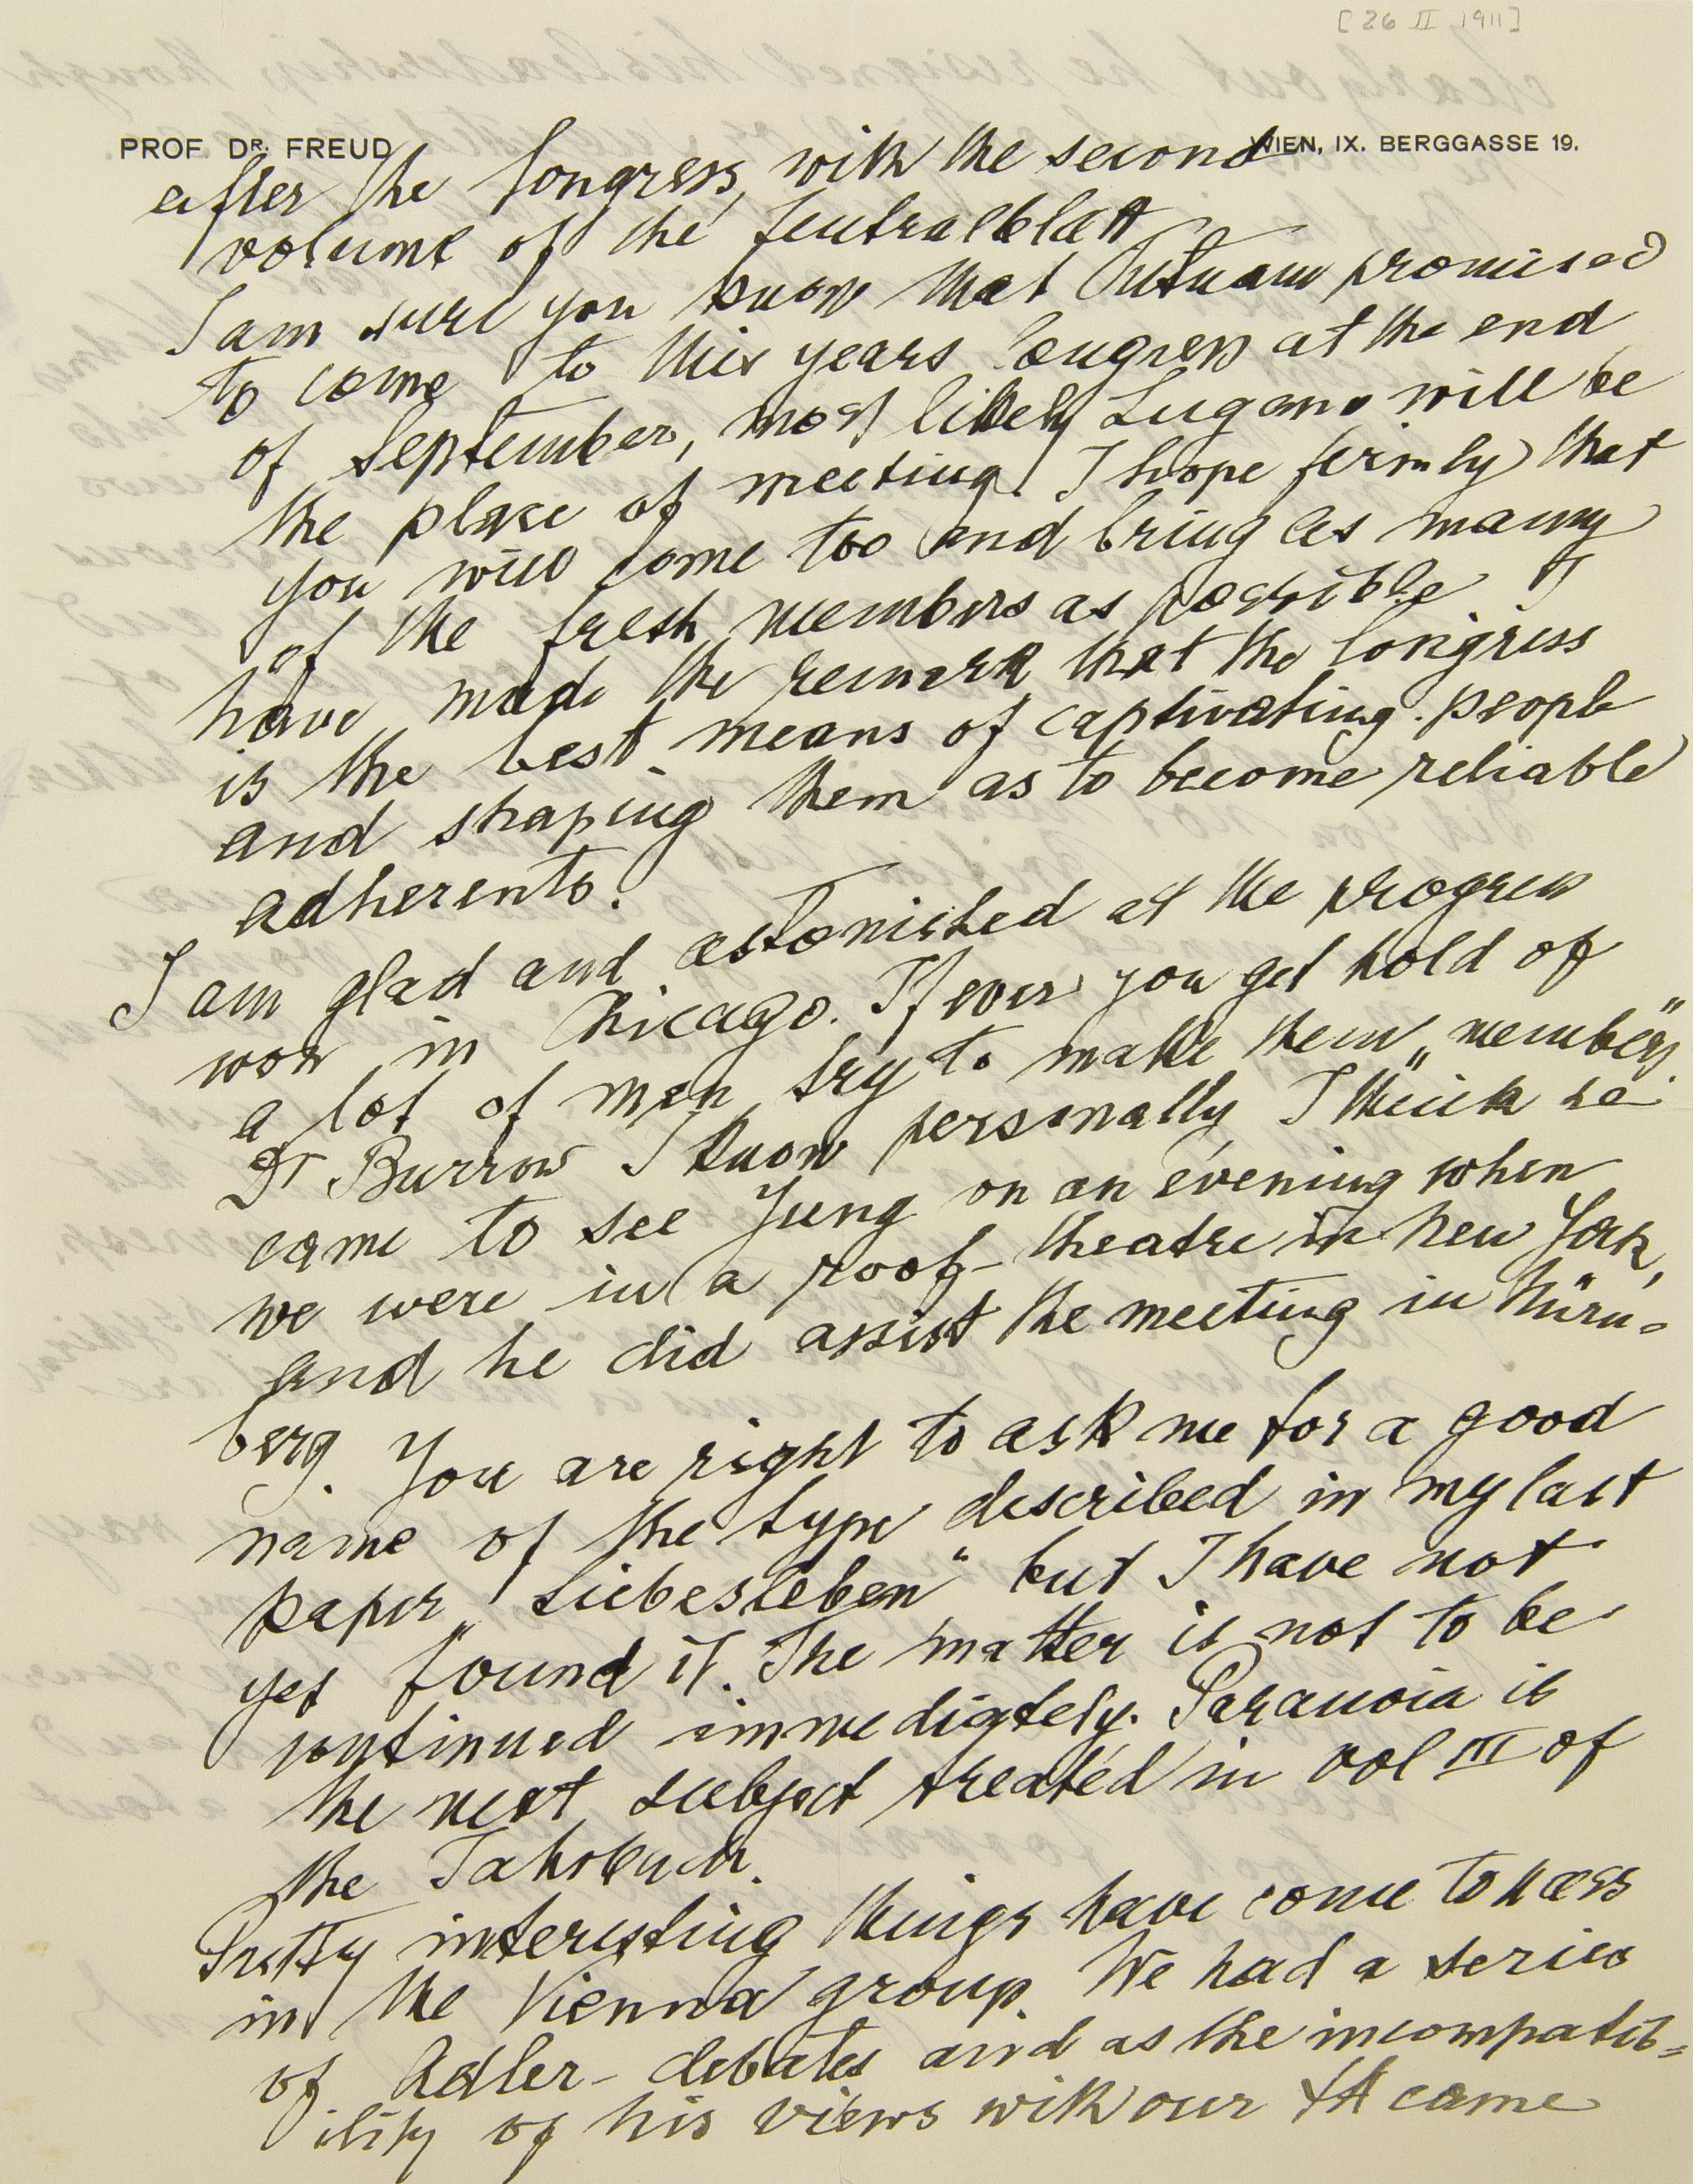 [26 II 1911]
PROF. DR. FREUD
WIEN, IX. BERGGASSE 19.
after the Congress, with the second
volume of the Zentralblatt
I am sure you know that Putnam promised
to come to this years Congress at the end
of September, most likely Lugano will be
the place of meeting. I hope firmly that
you will come too and bring as many
of the fresh members as possible I
have made the remark that the Congress
is the best means of captivating people
and shaping them as to become reliable
adherents.
I am glad and astonished at the progress
won in Chicago. If ever you get hold of
a lot of men try to make them „members“.
Dr Burrow I know personally, I think he
came to see Jung on an evening when
we were in a roof-theatre in New York,
and he did assist the meeting in Nürn-
berg. You are right to ask me for a good
name of the type described in my last
paper „Liebesleben“ but I have not
yet found it. The matter is not to be
continued immediately. Paranoia is
the next subject treated in vol III of
the Jahrbuch.
Pretty interesting things have come to pass
in the Vienna group. We had a series
of Adler-debates and as the incompatib-
ility of his views with our ΨA came